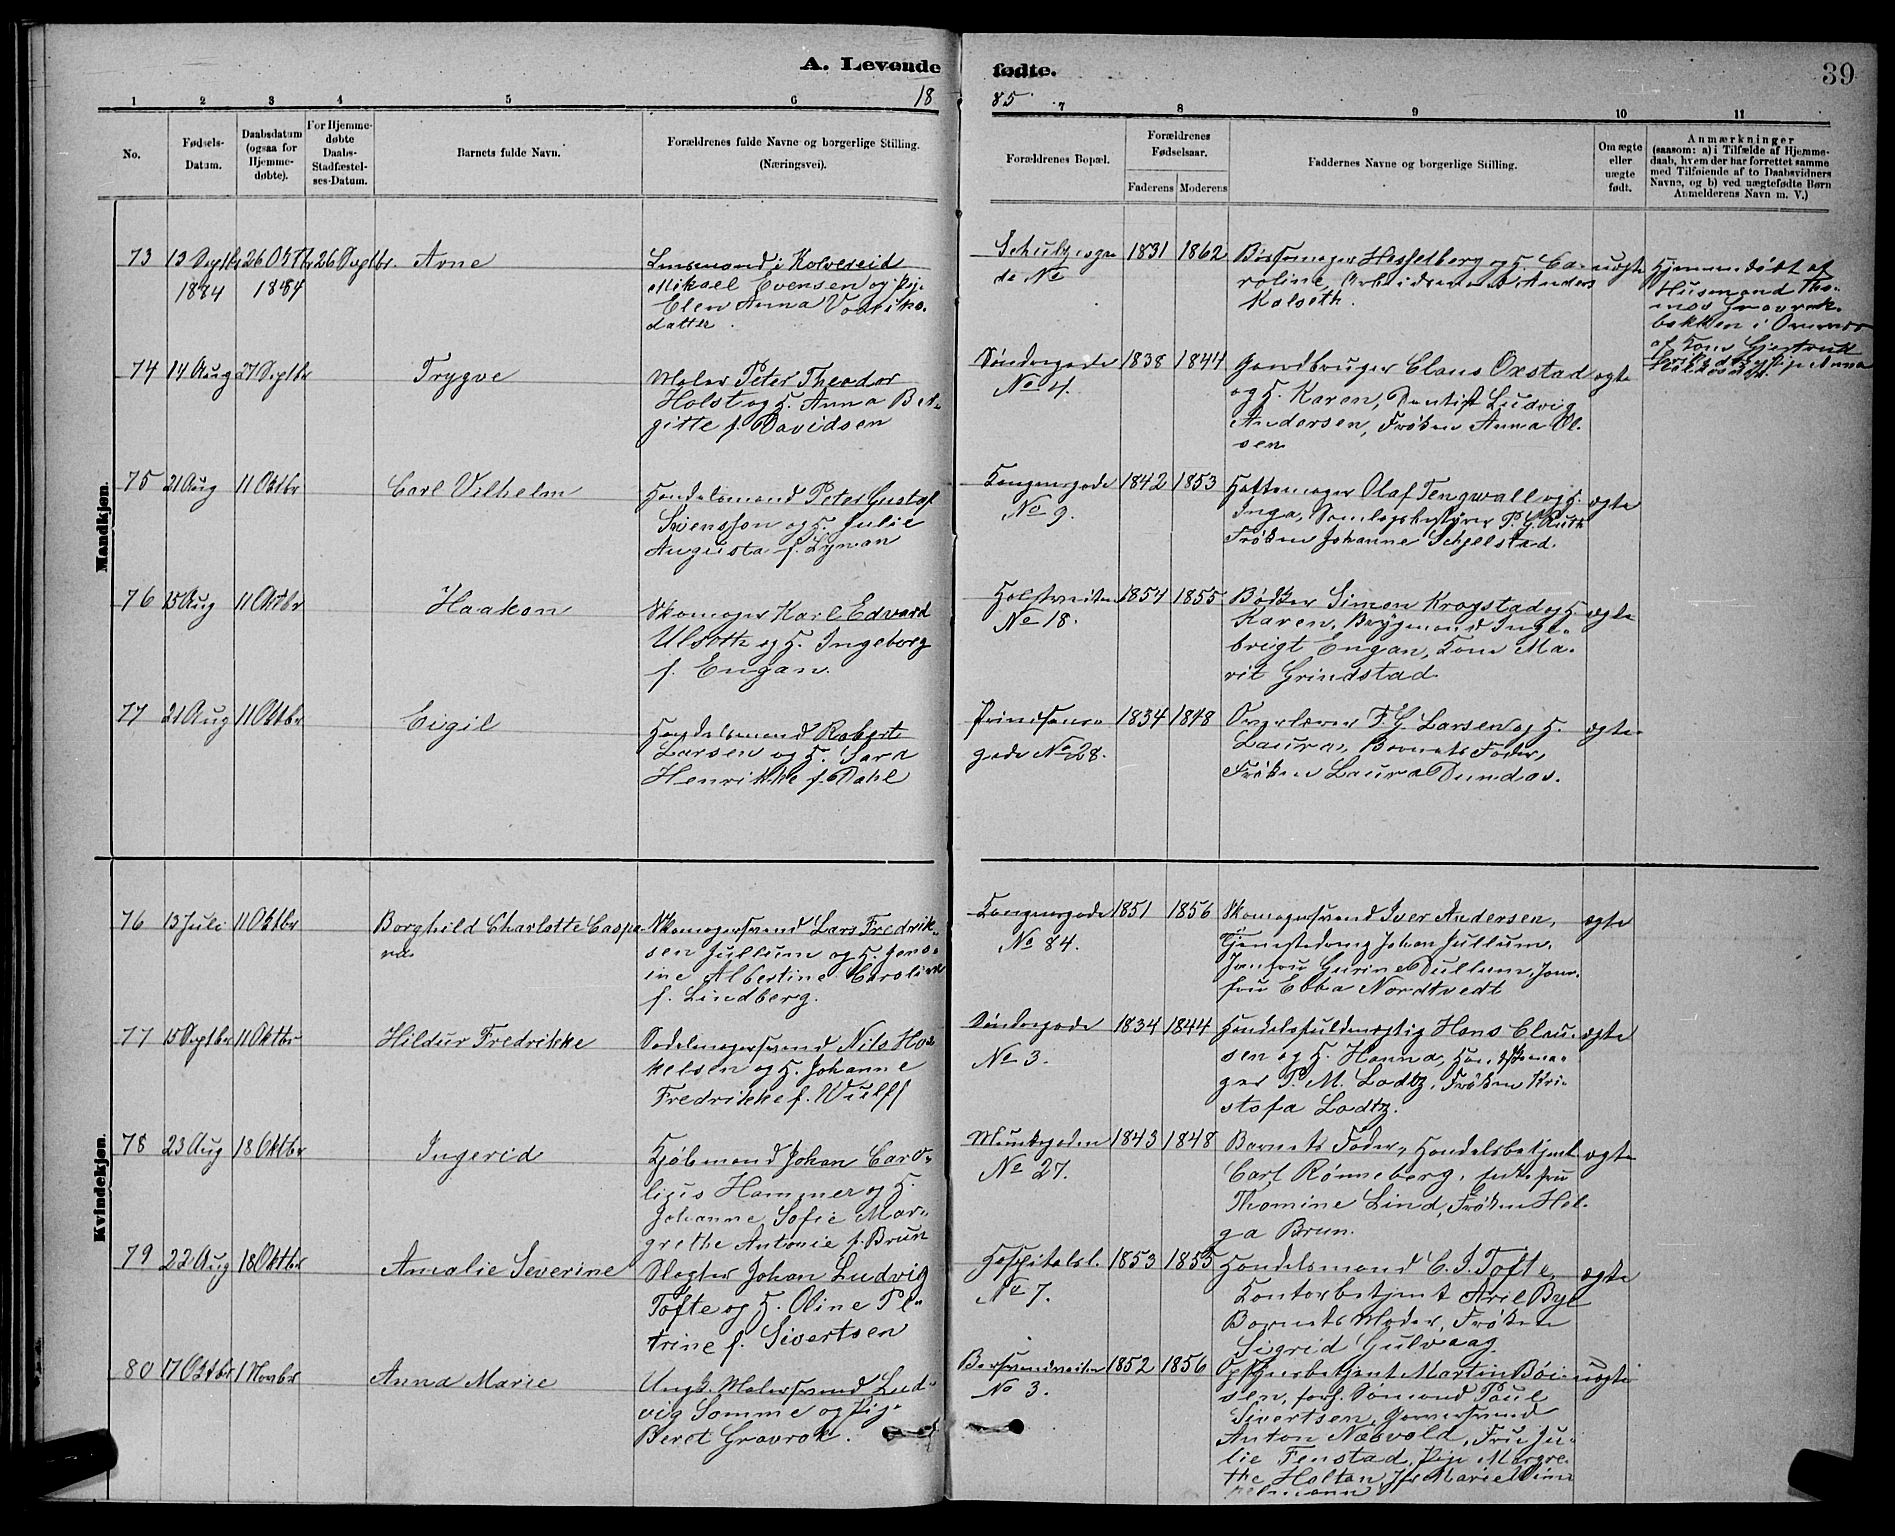 A. Levende fødte.
39
18 85
1 2 3 4 5 6 7 8 9 10 11
No.
Fødsels-Datum.
Daabsdatum (ogsaa for Hjemme-døbte).
For Hjemme-døbte Daabs-Stadfæstel-ses-Datum.
Barnets fulde Navn.
Forældrenes fulde Navne og borgerlige Stilling. (Næringsvei).
Forældrenes Bopæl.
Forældrenes Fødselsaar.
Faderens Moderens
Faddernes Navne og borgerlige Stilling.
Om ægte eller uægte født.
Anmærkninger
(saasom: a) i Tilfælde af Hjemme-
daab, hvem der har forrettet samme
med Tilføiende af to Daabsvidners
Navne, og b) ved uægtefødte Børn
Anmelderens Navn m. V.)
Mandkjøn.
73 13 Septbr 26 Oktbr 26 Septbr. Arne
1884 1884
Lensmand i Kolvereid
Mikael Evensen og Pige
Elen Anna
datter.
1831 1862
Bøssemager Hesselberg og H. Ca-
roline, Arbeidsmand Anders
Kalseth.
uægte
Hjemmedøbt af
Husmand Tho-
mas
bakken i
af Kone
74 14 Aug 27 Septbr Trygve
Maler Peter Theodor
Holst og H. Anna Bir-
gitte f. Davidsen
Søndregade
No 4.
1838 1844
Gaardbruger Claus Oxstad
og H. Karen, Dentist Ludvig
Andersen, Frøken Anna Ol-
sen
ægte
75 21 Aug 11 Oktbr Carl Vilhelm
Handelsmand Peter Gustaf
Svensson og H. Julie
Augusta f. Lyman
Kongensgade
No 9.
1842 1853
Hattemager Olaf Tengwall og H.
Inga, Samlagsbestyrer P. G. Ruth
Frøken Johanne Schjelstad.
ægte
76 15 Aug 11 Oktbr Haakon
Skomager Karl Edvard
Ulseth og H. Ingeborg
f. Engan.
Holstveiten
No 18.
1854 1855
Bødker Simon Krogstad og H.
Karen, Brygmand Inge-
brigt Engan, Kone Ma-
rit Grindstad
ægte
77 21 Aug 11 Oktbr Eigil
Handelsmand Robert
Larsen og H. Sara
Henrikke f. Dahl
Prindsens-
gade No 28.
1834 1848
Overlærer F. G. Larsen og H.
Laura, Barnets Fader,
Frøken Laura Dundas.
ægte
Kvindekjøn.
76 13 Juli 11 Oktbr Borghild Charlotte Caspa-
ra
Skomagersvend Lars Fredrik-
sen Jullum og H. Jens-
ine Albertine Caroline
f. Lindberg.
Kongensgade
No 84.
1851 1856
Skomagersvend Iver Andersen,
Tjenestedreng Johan Jullum,
Jomfru Gurine Dullum, Jom-
fru Ebba Nordtvedt
ægte
77 15 Septbr 11 Oktbr Hildur Fredrikke
Sadelmagersvend Nils Ha-
kelsen og H. Johanne
Fredrikke f. Wulff
Søndregade
No 3.
1834 1844
Handelsfuldmægtig Hans Clau-
sen og H. Hanna, Handskema-
ger P. M. Lodtz, Frøken Kri-
stofa Lodtz.
ægte
78 23 Aug 18 Oktbr Ingerid
Kjøbmand Johan Caro-
lius Hammer og H.
Johanne Sofie Mar-
grethe Antonie f. Brun
Munkegaden
No 27.
1843 1848
Barnets Fader, Handelsbetjent
Carl Rønneberg, Enkefru
Thomine Lind, Frøken Hel-
ga Brun.
ægte
79 22 Aug 18 Oktbr Amalie Severine
Slagter Johan Ludvig
Tofte og H. Oline Pe-
trine f. Sivertsen
Hospitalsl.
No 7.
1853 1855
Handelsmand C. J. Tofte,
Kontorbetjent Axel Bye
Barnets Moder, Frøken
Sigrid Gulvaag
ægte
80 17 Oktbr 1 Novbr Anna Marie
Ungk. Malersvend Lud-
vig Somme og Pige
Beret Gravrok.
No 3.
1852 1856
Opsynsbetjent Martin Bøi-
sen, forh. Sømand Paul
Sivertsen, Garversvend
Anton Næsvold, Fru Ju-
lie Fenstad, Pige Margre-
the Holtan, Jfr Marie
uægte